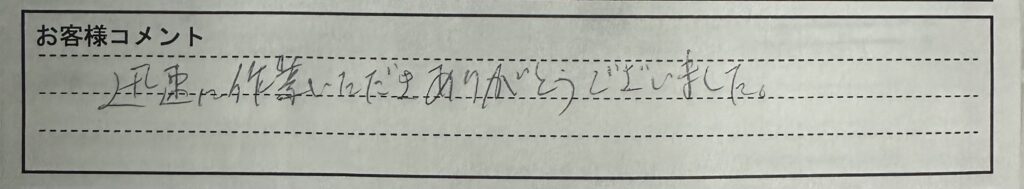 お客様コメント
迅速に作業いただきありがとうございました。